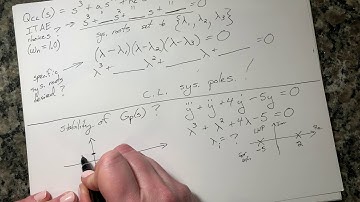 Qcl(s) = s³ + a₂s² +
ITAE
choices
(ωn = 1.0)
?
s³ + __ s² + __ s + __
sys. roots set to {λ₁, λ₂, λ₃}
specific
sys. roots
desired ?
(λ-λ₁)(λ-λ₂)(λ-λ₃) = 0
λ³ + __ λ² + __ λ + __ = 0
C.L. sys. poles !
stability of Gp(s) ?
y⃛ + ÿ + 4ẏ - 5y = 0
λ³ + λ² + 4λ - 5 = 0
λᵢ = ?
LHP
Im
Re
-5
2